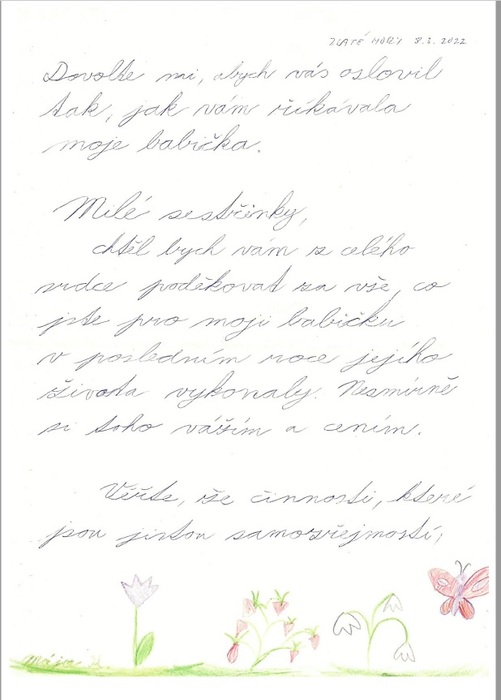 ZLATÉ HORY 8.2.2022
Dovolte mi, abych vás oslovil
tak, jak vám říkávala
moje babička.
Milé sestřinky,
chtěl bych vám z celého
srdce poděkovat za vše, co
jste pro moji babičku
v posledním roce jejího
života vykonaly. Nesmírně
si toho vážím a cením.
Věřte, že činnosti, které
jsou jistou samozřejmostí,
Mája